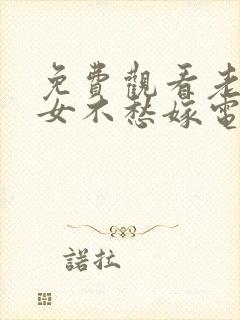 免費觀看老
女不愁嫁電
諾拉